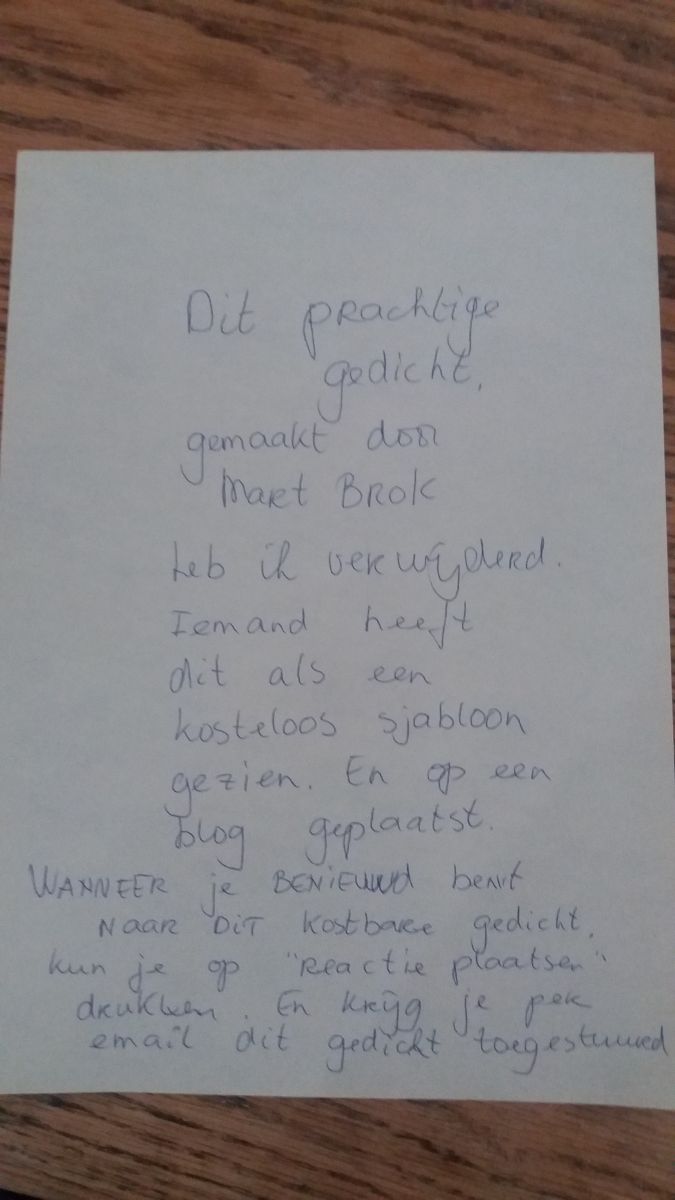 Dit prachtige
gedicht,
gemaakt door
Mart Brok
heb ik verwijderd.
Iemand heeft
dit als een
kosteloos sjabloon
gezien. En op een
blog geplaatst.
WANNEER je BENIEUWD bent
NAAR DIT kostbare gedicht,
kun je op "Reactie plaatsen"
drukken. En krijg je per
email dit gedicht toegestuurd